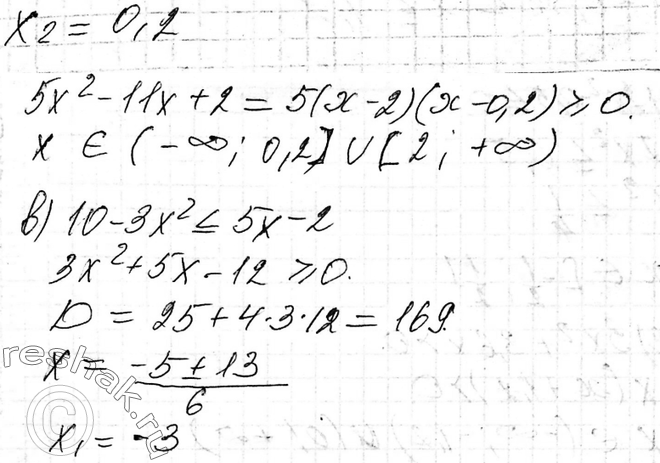 x₂ = 0,2
5x² - 11x + 2 = 5(x - 2)(x - 0,2) ≥ 0.
x ∈ (-∞; 0,2] ∪ [2; +∞)
в) 10 - 3x² ≤ 5x - 2
3x² + 5x - 12 ≥ 0.
D = 25 + 4·3·12 = 169.
x = (-5 ± 13)/6
x₁ = -3
reshak.ru